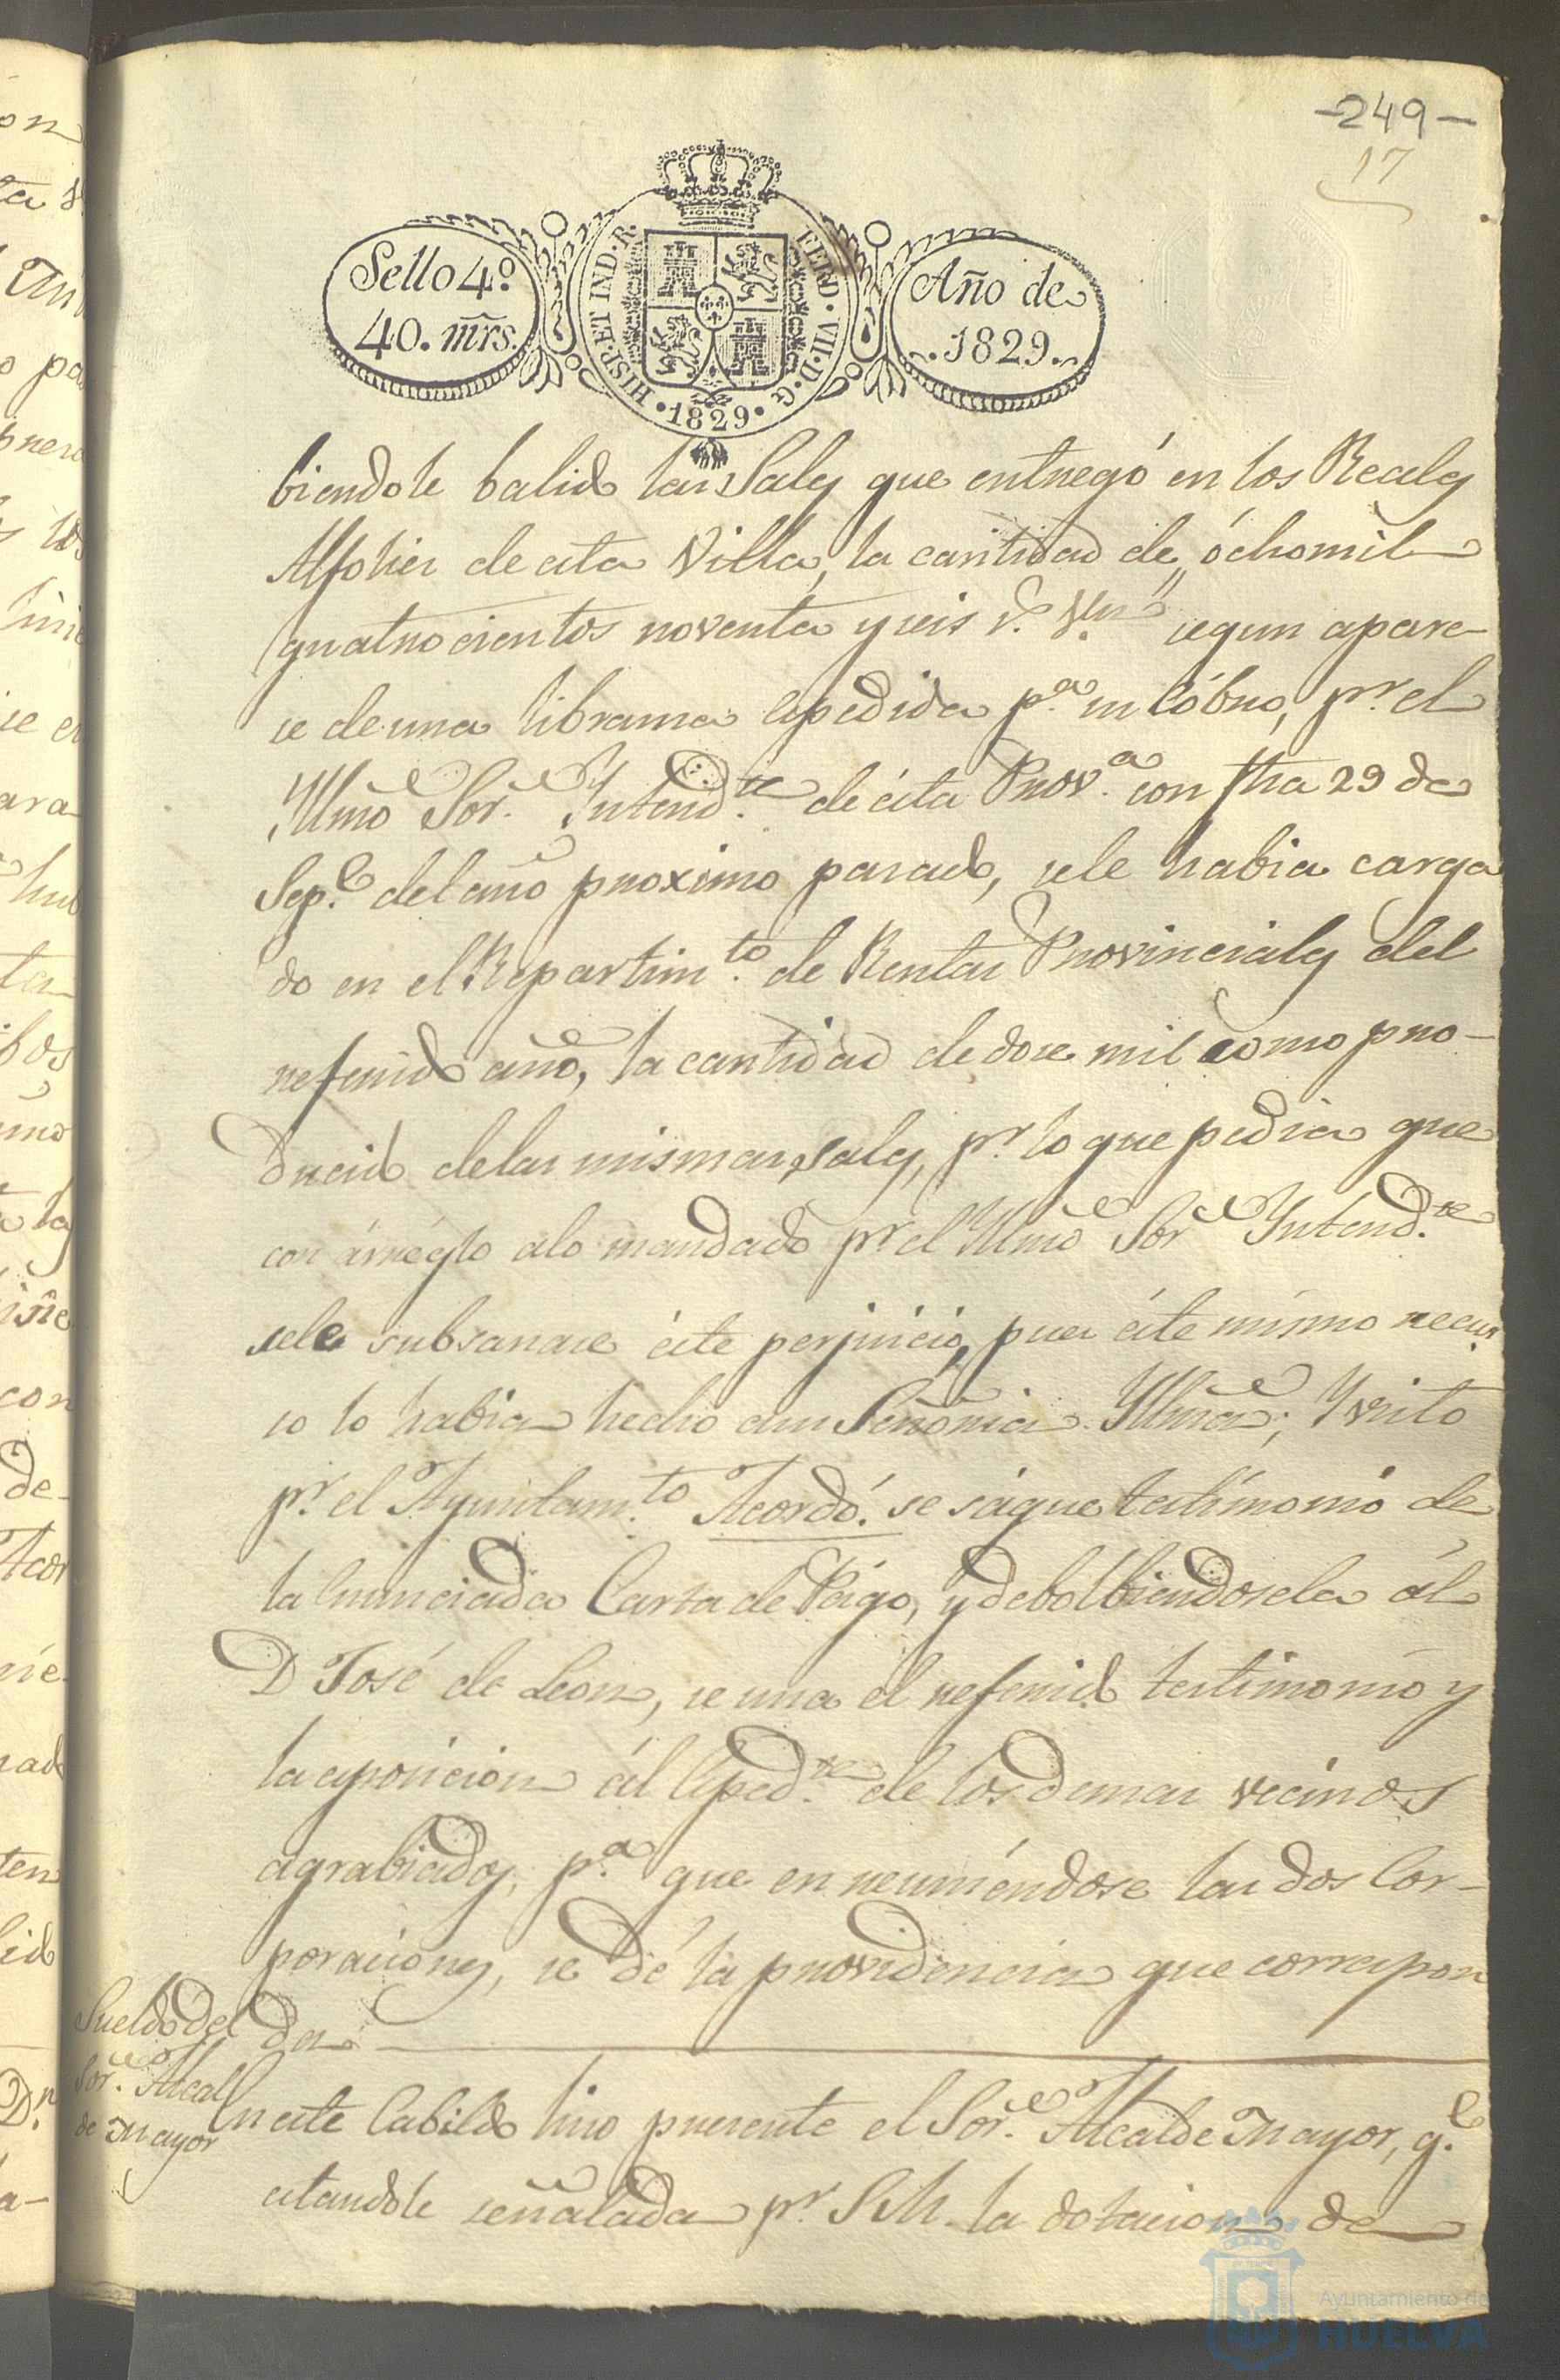 -249-
17
Sello 4.º
40. mrs.
HISP. ET IND. R.
FERD. VII. D. G.
1829
Año de
1829.
biendole balido las Sales que entregó en los Reales
Alfolies de esta Villa, la cantidad de, óchomil
quatrocientos noventa y seis r.s Vn.s segun apare-
se de una libransa espedida p.a su cóbro, p.r el
Yllmo Sor. Yntend.te de ésta Prov.a con fha 29 de
Sep.e del año proximo pasado, sele habia carga
do en el Repartim.to de Rentas Provinciales del
referido año, la cantidad de dose mil como pro-
ducido delas mismas sales, p.r lo que pedia que
con árréglo alo mandado p.r el Yllmo Sor Yntend.te
sele subsanase éste perjuicio, pues éste mismo recur
so lo habia hecho asu Señoria Yllma; Y visto
p.r el Ayuntam.to Acordó: se sáque testimonio de
la Enunciada Carta de Págo, y debolbiendosela ál
D José de Leon, se una el referido testimonio y
la esposicion ál Esped.te de los demas vecinos
agrabiados, p.a que en reuniéndose las dos Cor-
poraciones, se dé la providencia que correspon
da
Sueldo del
Sor. Alcal
de Mayor
En este Cabildo hiso presente el Sor. Alcalde Mayor, q.e
estandole señalada p.r S.M. la dotacion de
Ayuntamiento de
HUELVA